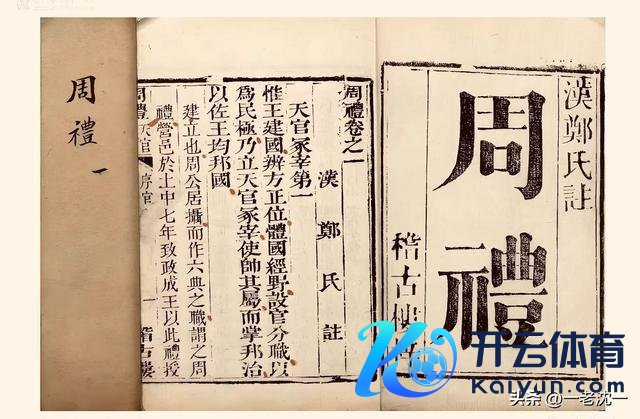 漢鄭氏註
周禮
稽古樓
周禮卷之一
漢鄭氏註
天官冢宰第一
惟王建國辨方正位體國經野設官分職以
為民極乃立天官冢宰使帥其屬而掌邦治
以佐王均邦國
建立也周公居攝而作六典之職謂之周
禮營邑於土中七年致政成王以此禮授
周禮 天官 序官 一 稽古樓
周禮 一
开云体育
Kaiyun.com
头条 @一老沈一